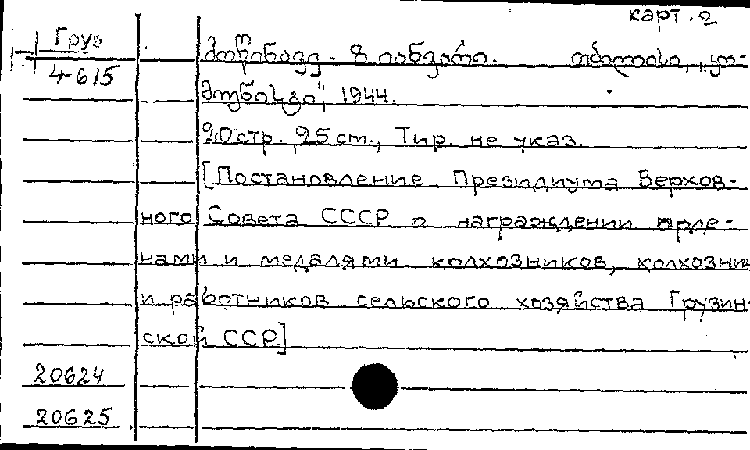 карт. 2
Груз
4-615
8 იანვარი. თბილისი, „კო-
მუნისტი", 1944.
20 стр. 25 см., Тир. не указ.
[Постановление Президиума Верхов-
ного Совета СССР о награждении орде-
нами и медалями колхозников, колхозниц
и работников сельского хозяйства Грузин-
ской ССР]
20624
20625